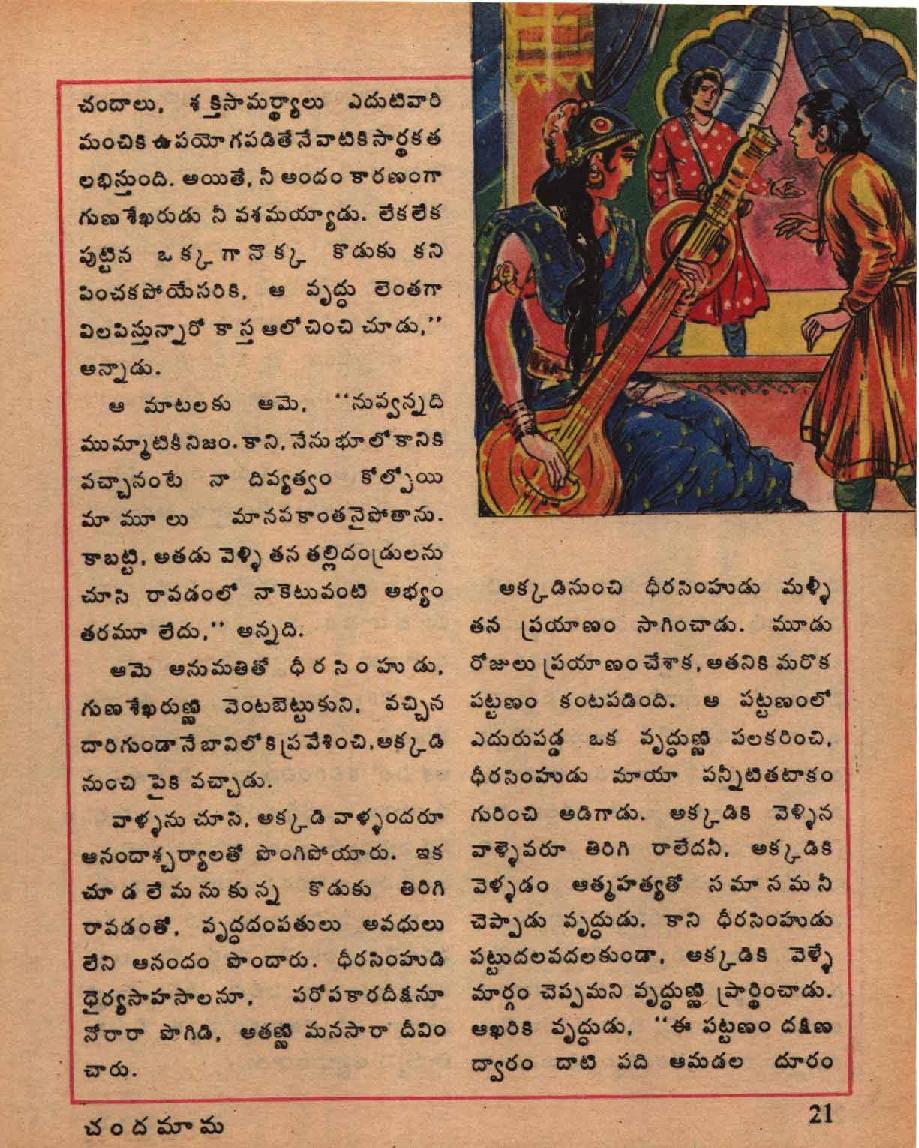 చందాలు, శక్తిసామర్థ్యాలు ఎదుటివారి
మంచికి ఉపయోగపడితేనే వాటికి సార్థకత
లభిస్తుంది. అయితే, నీ అందం కారణంగా
గుణశేఖరుడు నీ వశమయ్యాడు. లేకలేక
పుట్టిన ఒక్కగానొక్క కొడుకు కని
పించకపోయేసరికి, ఆ వృద్ధు లెంతగా
విలపిస్తున్నారో కాస్త ఆలోచించి చూడు,''
అన్నాడు.
ఆ మాటలకు ఆమె, ''నువ్వన్నది
ముమ్మాటికీ నిజం. కాని, నేను భూలోకానికి
వచ్చానంటే నా దివ్యత్వం కోల్పోయి
మామూలు మానవకాంతనైపోతాను.
కాబట్టి, అతడు వెళ్ళి తన తల్లిదండ్రులను
చూసి రావడంలో నాకెటువంటి అభ్యం
తరమూ లేదు,'' అన్నది.
ఆమె అనుమతితో ధీరసింహుడు,
గుణశేఖరుణ్ణి వెంటబెట్టుకుని, వచ్చిన
దారిగుండానే బావిలోకి ప్రవేశించి, అక్కడి
నుంచి పైకి వచ్చాడు.
వాళ్ళను చూసి, అక్కడి వాళ్ళందరూ
ఆనందాశ్చర్యాలతో పొంగిపోయారు. ఇక
చూడలేమనుకున్న కొడుకు తిరిగి
రావడంతో, వృద్ధదంపతులు అవధులు
లేని ఆనందం పొందారు. ధీరసింహుడి
ధైర్యసాహసాలనూ, పరోపకారదీక్షనూ
నోరారా పొగిడి, అతణ్ణి మనసారా దీవిం
చారు.
అక్కడినుంచి ధీరసింహుడు మళ్ళీ
తన ప్రయాణం సాగించాడు. మూడు
రోజులు ప్రయాణం చేశాక, అతనికి మరొక
పట్టణం కంటపడింది. ఆ పట్టణంలో
ఎదురుపడ్డ ఒక వృద్ధుణ్ణి పలకరించి,
ధీరసింహుడు మాయా పన్నీటితటాకం
గురించి అడిగాడు. అక్కడికి వెళ్ళిన
వాళ్ళెవరూ తిరిగి రాలేదనీ, అక్కడికి
వెళ్ళడం ఆత్మహత్యతో సమానమనీ
చెప్పాడు వృద్ధుడు. కాని ధీరసింహుడు
పట్టుదలవదలకుండా, అక్కడికి వెళ్ళే
మార్గం చెప్పమని వృద్ధుణ్ణి ప్రార్థించాడు.
ఆఖరికి వృద్ధుడు, ''ఈ పట్టణం దక్షిణ
ద్వారం దాటి పది ఆమడల దూరం
చందమామ
21